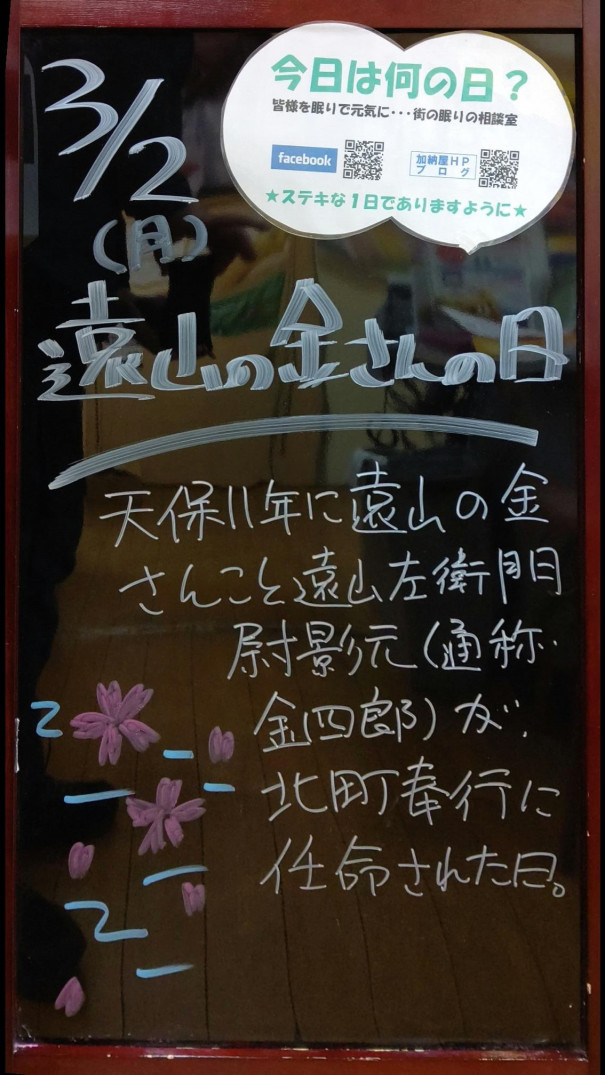 3/2
(月)
今日は何の日？
皆様を眠りで元気に・・・街の眠りの相談室
facebook
加納屋HP
ブログ
★ステキな1日でありますように★
遠山の金さんの日
天保11年に遠山の金
さんこと遠山左衛門
尉影元(通称
金四郎)が、
北町奉行に
任命された日。